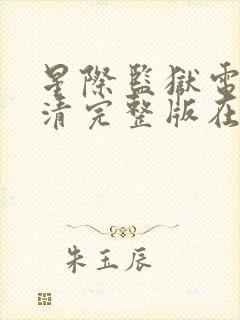 星際監獄電
清完整版在
朱玉辰